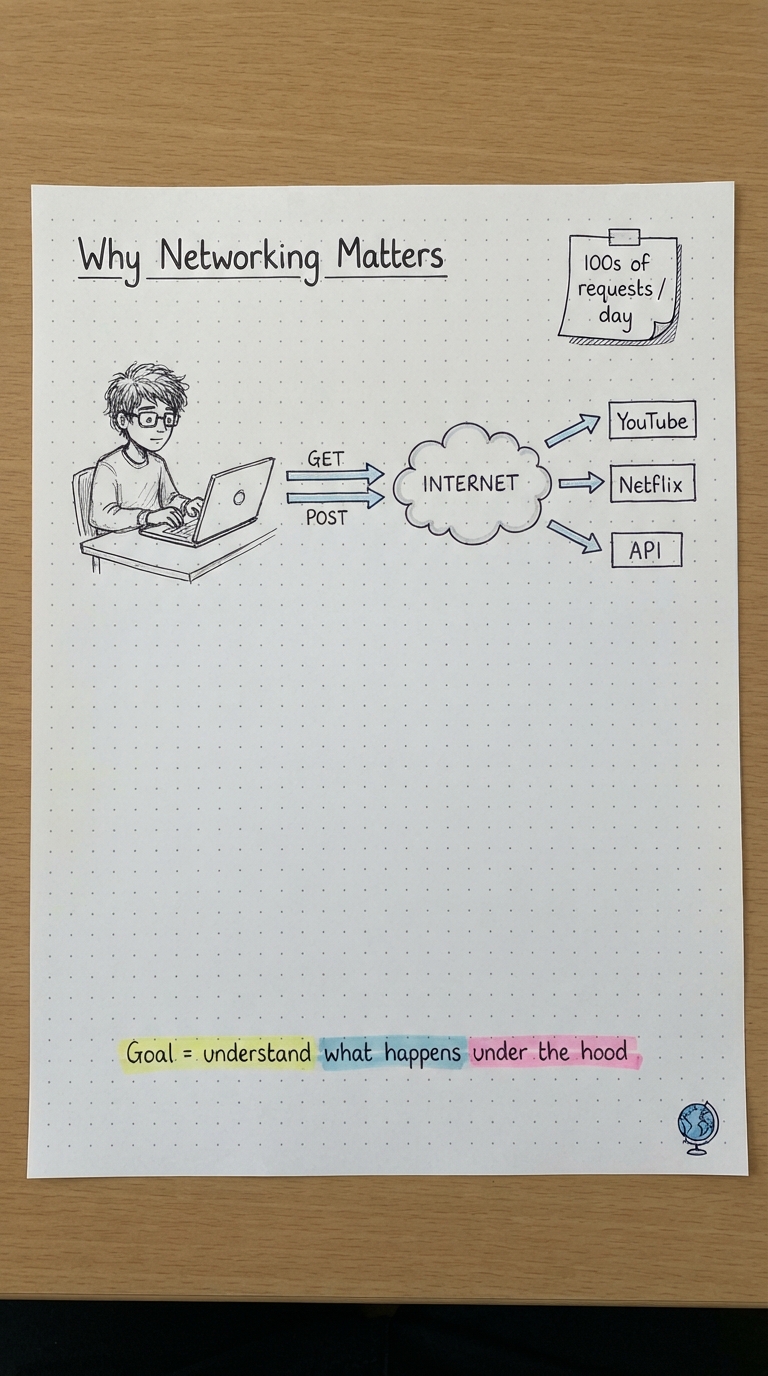 Why Networking Matters
100s of
requests/
day
GET
POST
INTERNET
YouTube
Netflix
API
Goal = understand what happens under the hood